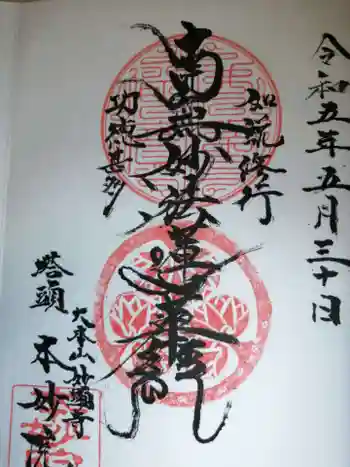 令和五年五月三十日
如説修行
南無妙法蓮華経
功徳甚多
大本山妙顕寺
塔頭 本妙院